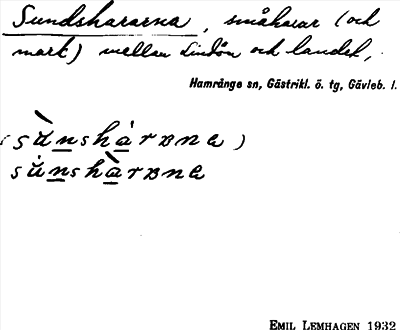 Sundshararna, småharar (och
mark) mellan Lindön och landet,
Hamrånge sn, Gästrikl. ö. tg, Gävleb. l.
(sùnshárɒna)
súnshàrɒna
EMIL LEMHAGEN 1932